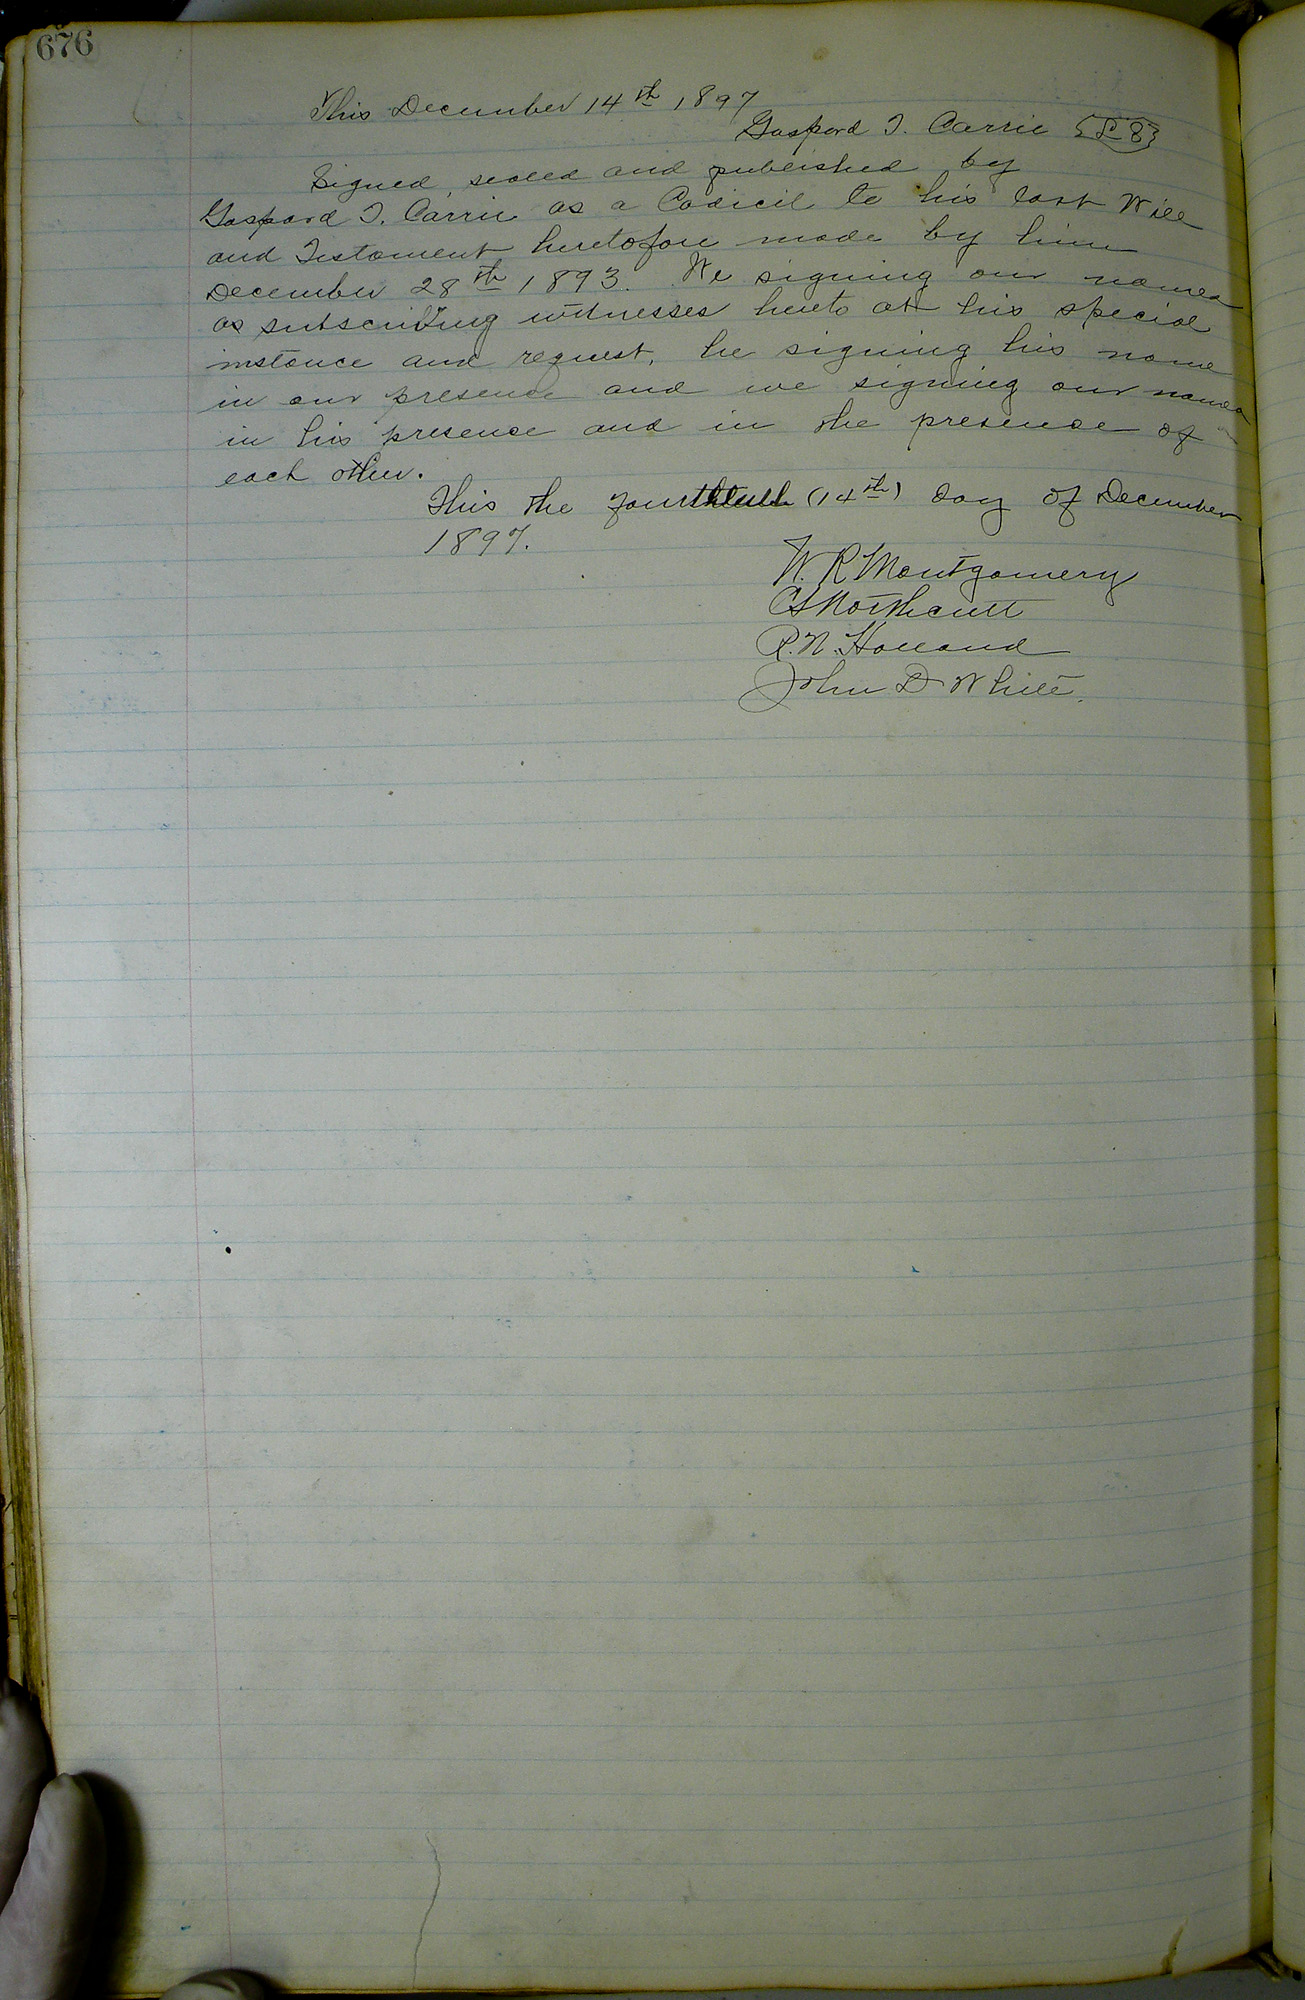 676
This December 14th 1897
Gaspard T. Carrie {L S}
Signed, sealed and published by
Gaspard T. Carrie as a Codicil to his last Will
and Testament heretofore made by him
December 28th 1893. We signing our names
as subscribing witnesses hereto at his special
instance and request, he signing his name
in our presence and we signing our names
in his presence and in the presence of
each other.
This the fourteenth (14th) day of December
1897.
W. R Montgomery
C S Northcutt
R. N. Holland
John D White.